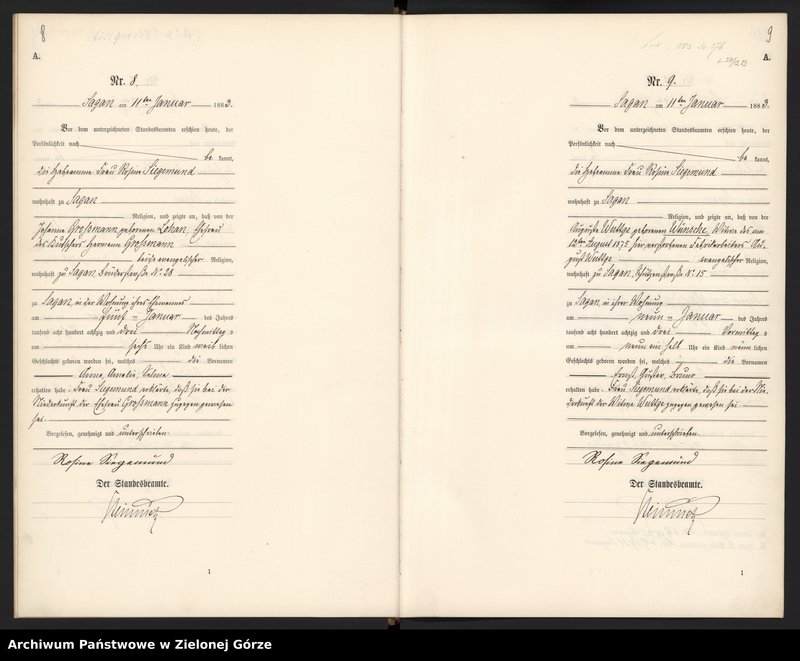 8
A.
Nr. 8.
Sagan am 11ten Januar 1883.
Vor dem unterzeichneten Standesbeamten erschien heute, der
Persönlichkeit nach
be kannt,
die Hebeamme Frau Rosine Siegemund
wohnhaft zu Sagan
Religion, und zeigte an, daß von der
Johanne Großmann, geborenen Lohan, Ehefrau
des Kutschers Hermann Großmann
beide evangelischer Religion,
wohnhaft zu Sagan, Bruderstraße N. 28
zu Sagan, in der Wohnung ihres Ehemannes
am fünf ten Januar des Jahres
tausend acht hundert achtzig und drei Nachmittag s
um sechs Uhr ein Kind weib lichen
Geschlechts geboren worden sei, welches die Vornamen
Anna, Amalie, Selma
erhalten habe. Frau Siegemund erklärte, daß sie bei der
Niederkunft der Ehefrau Großmann zugegen gewesen
sei.
Vorgelesen, genehmigt und unterschrieben.
Rosine Siegemund
Der Standesbeamte.
1
9
A.
Nr. 9.
Sagan am 11ten Januar 1883.
Vor dem unterzeichneten Standesbeamten erschien heute, der
Persönlichkeit nach
be kannt,
die Hebeamme Frau Rosine Siegemund
wohnhaft zu Sagan
Religion, und zeigte an, daß von der
Auguste Wuttge geborenen Wunscke, Witwe des am
12ten August 1875 hier verstorbenen Fabrikarbeiters Au-
gust Wuttge evangelischer Religion,
wohnhaft zu Sagan, Schützenstraße N. 15
zu Sagan, in ihrer Wohnung
am neun ten Januar des Jahres
tausend acht hundert achtzig und drei Vormittag s
um neun ein halb Uhr ein Kind männ lichen
Geschlechts geboren worden sei, welches die Vornamen
Ernst, Gustav, Bruno
erhalten habe. Frau Siegemund erklärte, daß sie bei der Nie-
derkunft der Witwe Wuttge zugegen gewesen sei.
Vorgelesen, genehmigt und unterschrieben.
Rosine Siegemund
Der Standesbeamte.
1
Archiwum Państwowe w Zielonej Górze